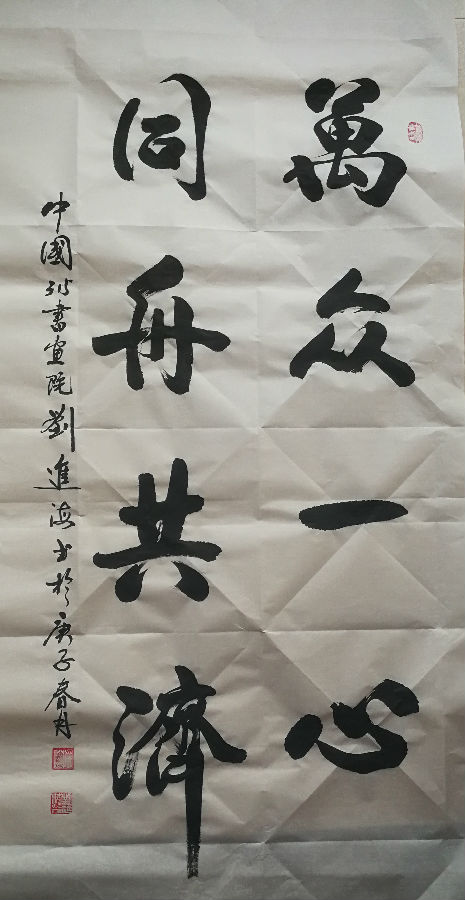 萬众一心
同舟共濟
中國北書畫院劉進海書於庚子春月